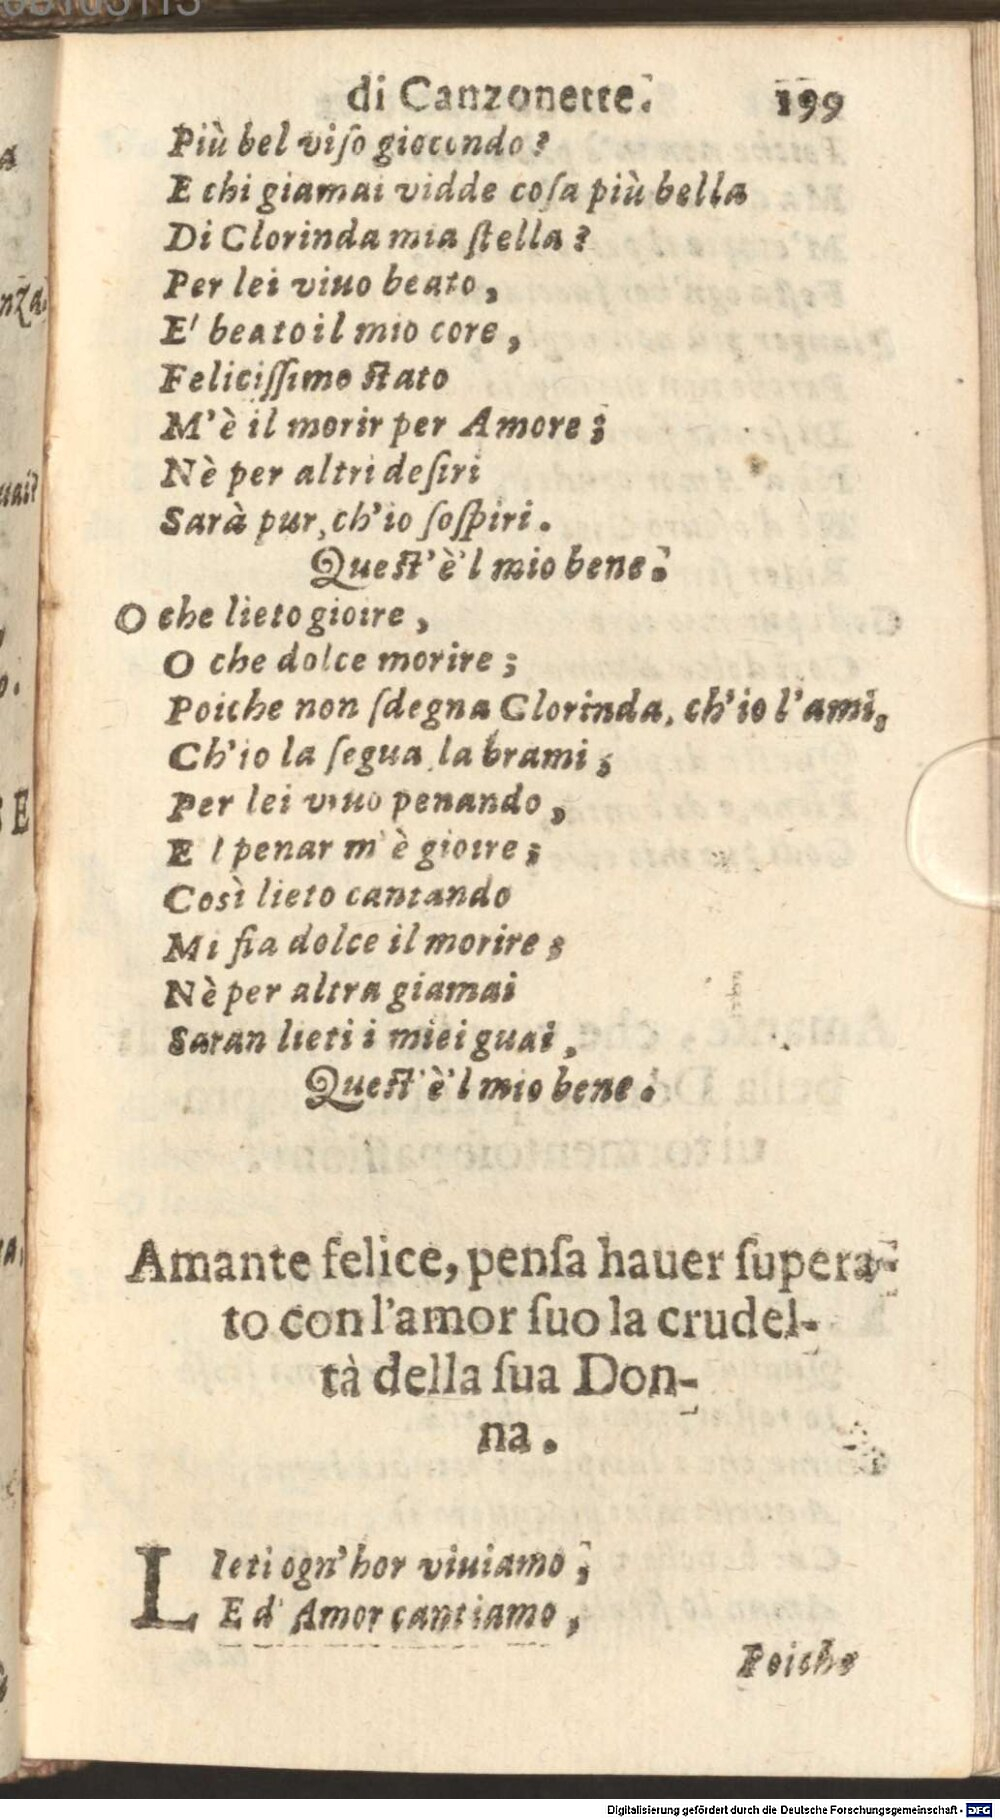 di Canzonette. 199
Più bel viſo giocondo?
E chi giamai vidde coſa più bella
Di Clorinda mia ſtella?
Per lei viuo beato,
E' beato il mio core,
Feliciſſimo ſtato
M'è il morir per Amore;
Nè per altri deſiri
Sarà pur, ch'io ſoſpiri.
Queſt'è'l mio bene.
O che lieto gioire,
O che dolce morire;
Poiche non ſdegna Clorinda, ch'io l'ami,
Ch'io la ſegua la brami;
Per lei viuo penando,
E l penar m'è gioire;
Così lieto cantando
Mi fia dolce il morire;
Nè per altra giamai
Saran lieti i miei guai,
Queſt'è'l mio bene.
Amante felice, penſa hauer ſupera-
to con l'amor ſuo la crudel-
tà della ſua Don-
na.
LIeti ogn'hor viuiamo;
E d'Amor cantiamo,
Poiche
Digitalisierung gefördert durch die Deutsche Forschungsgemeinschaft - DFG